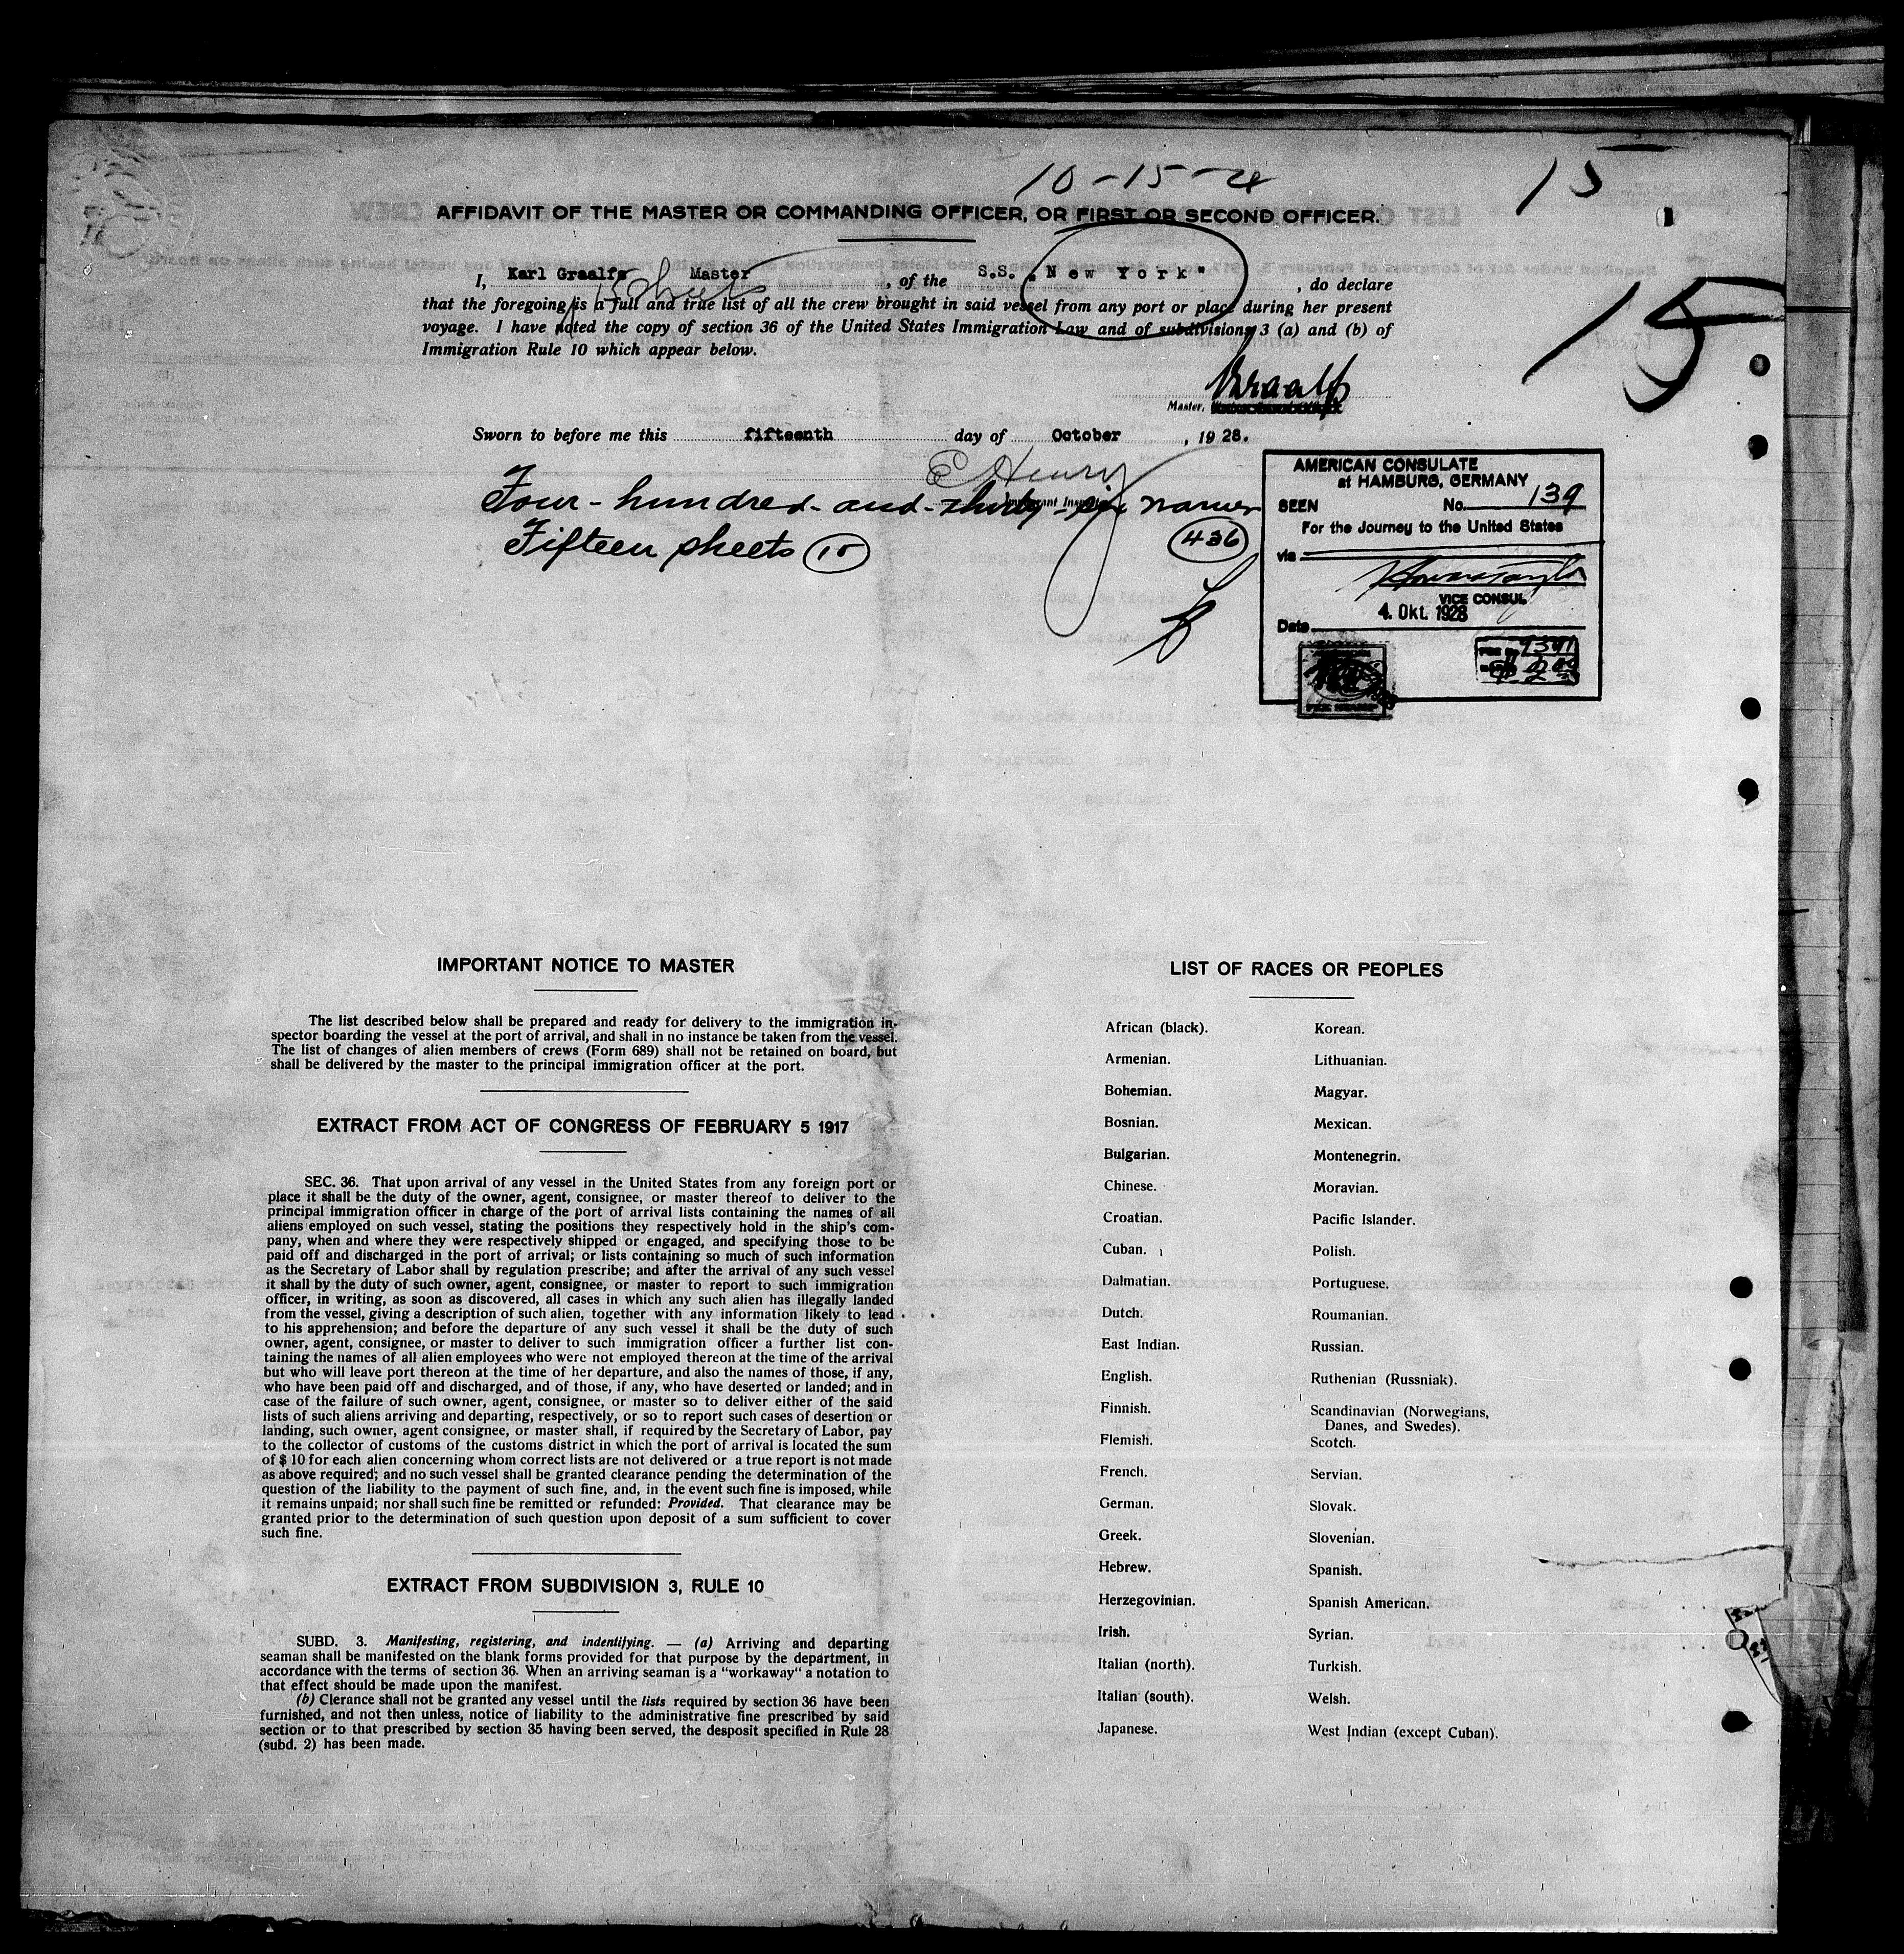 10-15-
15
AFFIDAVIT OF THE MASTER OR COMMANDING OFFICER, OR FIRST OR SECOND OFFICER.
I, Karl Graalfs Master, of the S.S. "New York", do declare
that the foregoing is a full and true list of all the crew brought in said vessel from any port or place during her present
voyage. I have noted the copy of section 36 of the United States Immigration Law and of subdivisions 3 (a) and (b) of
Immigration Rule 10 which appear below.
15
Graalfs
Master,
Sworn to before me this fifteenth day of October, 1928.
E Henry
Immigrant Inspector
Four-hundred-and-thirty-six names
Fifteen sheets 15
436
AMERICAN CONSULATE
at HAMBURG, GERMANY
SEEN No. 139
For the Journey to the United States
via
VICE CONSUL
4. Okt. 1928
Date
IMPORTANT NOTICE TO MASTER
The list described below shall be prepared and ready for delivery to the immigration in-
spector boarding the vessel at the port of arrival, and shall in no instance be taken from the vessel.
The list of changes of alien members of crews (Form 689) shall not be retained on board, but
shall be delivered by the master to the principal immigration officer at the port.
EXTRACT FROM ACT OF CONGRESS OF FEBRUARY 5 1917
SEC. 36. That upon arrival of any vessel in the United States from any foreign port or
place it shall be the duty of the owner, agent, consignee, or master thereof to deliver to the
principal immigration officer in charge of the port of arrival lists containing the names of all
aliens employed on such vessel, stating the positions they respectively hold in the ship's com-
pany, when and where they were respectively shipped or engaged, and specifying those to be
paid off and discharged in the port of arrival; or lists containing so much of such information
as the Secretary of Labor shall by regulation prescribe; and after the arrival of any such vessel
it shall by the duty of such owner, agent, consignee, or master to report to such immigration
officer, in writing, as soon as discovered, all cases in which any such alien has illegally landed
from the vessel, giving a description of such alien, together with any information likely to lead
to his apprehension; and before the departure of any such vessel it shall be the duty of such
owner, agent, consignee, or master to deliver to such immigration officer a further list con-
taining the names of all alien employees who were not employed thereon at the time of the arrival
but who will leave port thereon at the time of her departure, and also the names of those, if any,
who have been paid off and discharged, and of those, if any, who have deserted or landed; and in
case of the failure of such owner, agent, consignee, or master so to deliver either of the said
lists of such aliens arriving and departing, respectively, or so to report such cases of desertion or
landing, such owner, agent consignee, or master shall, if required by the Secretary of Labor, pay
to the collector of customs of the customs district in which the port of arrival is located the sum
of $ 10 for each alien concerning whom correct lists are not delivered or a true report is not made
as above required; and no such vessel shall be granted clearance pending the determination of the
question of the liability to the payment of such fine, and, in the event such fine is imposed, while
it remains unpaid; nor shall such fine be remitted or refunded: Provided. That clearance may be
granted prior to the determination of such question upon deposit of a sum sufficient to cover
such fine.
EXTRACT FROM SUBDIVISION 3, RULE 10
SUBD. 3. Manifesting, registering, and indentifying. — (a) Arriving and departing
seaman shall be manifested on the blank forms provided for that purpose by the department, in
accordance with the terms of section 36. When an arriving seaman is a "workaway" a notation to
that effect should be made upon the manifest.
(b) Clerance shall not be granted any vessel until the lists required by section 36 have been
furnished, and not then unless, notice of liability to the administrative fine prescribed by said
section or to that prescribed by section 35 having been served, the desposit specified in Rule 28
(subd. 2) has been made.
LIST OF RACES OR PEOPLES
African (black). Korean.
Armenian. Lithuanian.
Bohemian. Magyar.
Bosnian. Mexican.
Bulgarian. Montenegrin.
Chinese. Moravian.
Croatian. Pacific Islander.
Cuban. Polish.
Dalmatian. Portuguese.
Dutch. Roumanian.
East Indian. Russian.
English. Ruthenian (Russniak).
Finnish. Scandinavian (Norwegians,
Danes, and Swedes).
Flemish. Scotch.
French. Servian.
German. Slovak.
Greek. Slovenian.
Hebrew. Spanish.
Herzegovinian. Spanish American.
Irish. Syrian.
Italian (north). Turkish.
Italian (south). Welsh.
Japanese. West Indian (except Cuban).